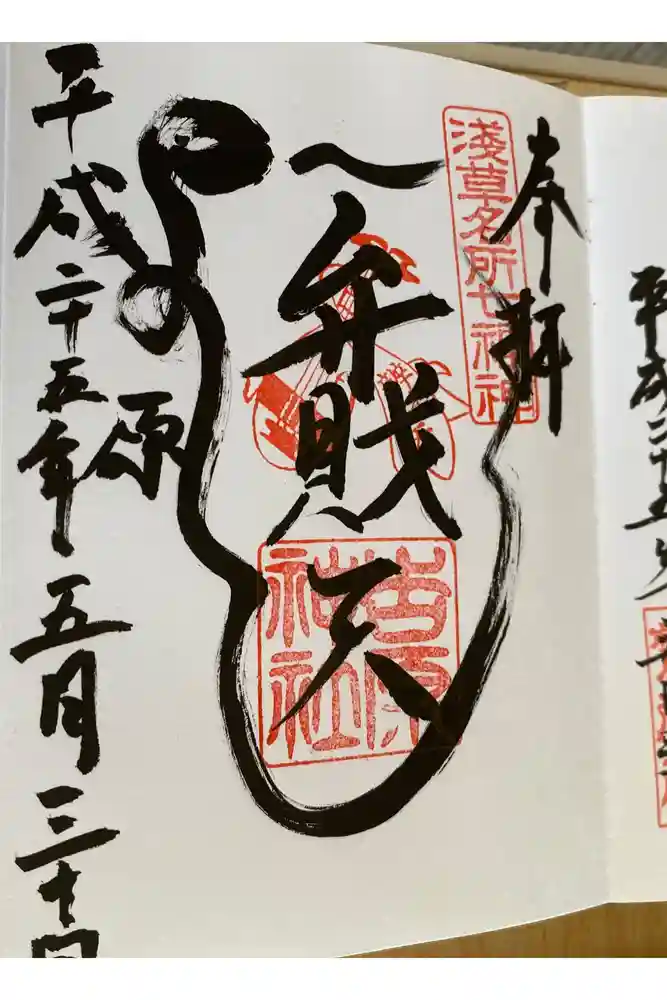 平成二十五年
奉拝
淺草名所七福神
弁財天
吉原神社
原
平成二十五年五月三十日